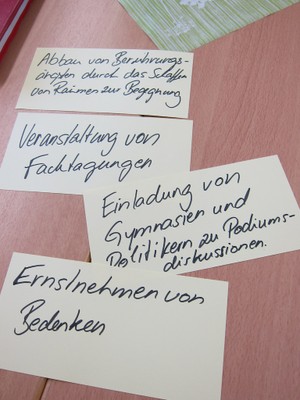 Abbau von Berührungs-
ängsten durch das Schaffen
von Räumen zur Begegnung
Veranstaltung von
Fachtagungen
Einladung von
Gymnasien und
Politikern zu Podiums-
diskussionen.
Ernstnehmen von
Bedenken